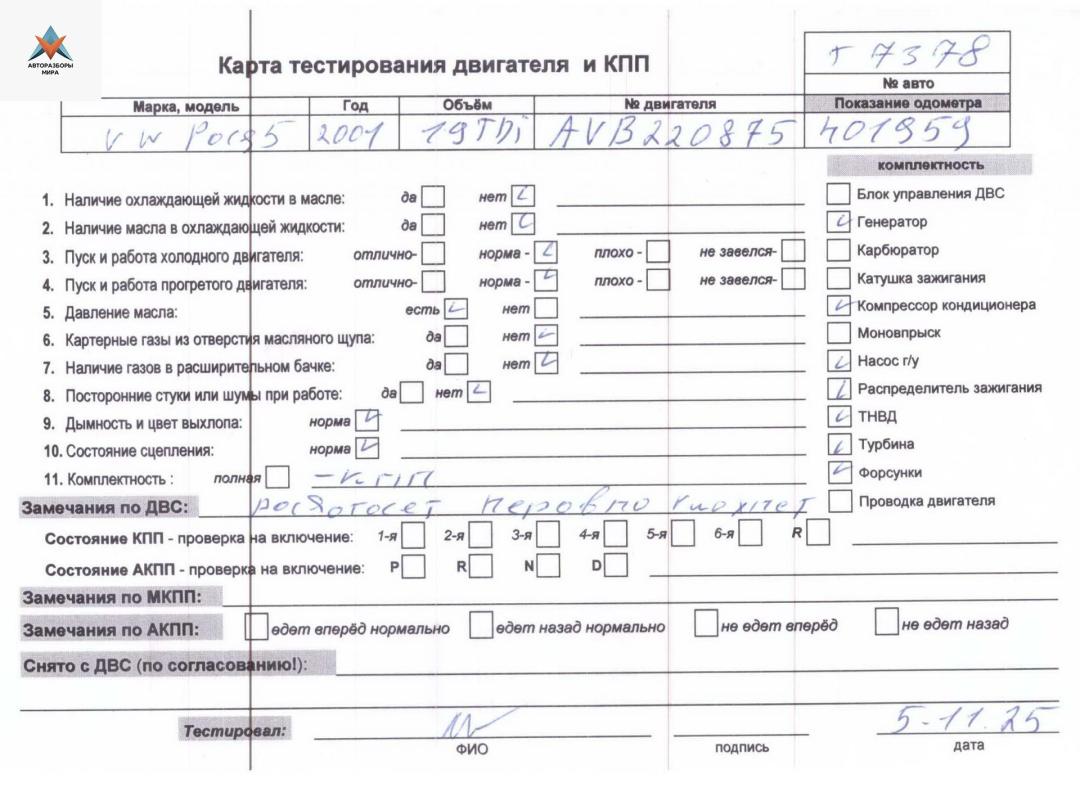 АВТОРАЗБОРЫ
МИРА
Карта тестирования двигателя и КПП
т 7378
№ авто
Марка, модель Год Объём № двигателя Показание одометра
VW 5 2001 19TDi AVB220875 401959
комплектность
1. Наличие охлаждающей жидкости в масле: да нет
2. Наличие масла в охлаждающей жидкости: да нет
3. Пуск и работа холодного двигателя: отлично- норма - плохо - не завелся-
4. Пуск и работа прогретого двигателя: отлично- норма - плохо - не завелся-
5. Давление масла: есть нет
6. Картерные газы из отверстия масляного щупа: да нет
7. Наличие газов в расширительном бачке: да нет
8. Посторонние стуки или шумы при работе: да нет
9. Дымность и цвет выхлопа: норма
10. Состояние сцепления: норма
11. Комплектность : полная -КПП
Блок управления ДВС
Генератор
Карбюратор
Катушка зажигания
Компрессор кондиционера
Моновпрыск
Насос г/у
Распределитель зажигания
ТНВД
Турбина
Форсунки
Проводка двигателя
Замечания по ДВС:
Состояние КПП - проверка на включение: 1-я 2-я 3-я 4-я 5-я 6-я R
Состояние АКПП - проверка на включение: P R N D
Замечания по МКПП:
Замечания по АКПП: едет вперёд нормально едет назад нормально не едет вперёд не едет назад
Снято с ДВС (по согласованию!):
Тестировал: 5-11.25
ФИО подпись дата